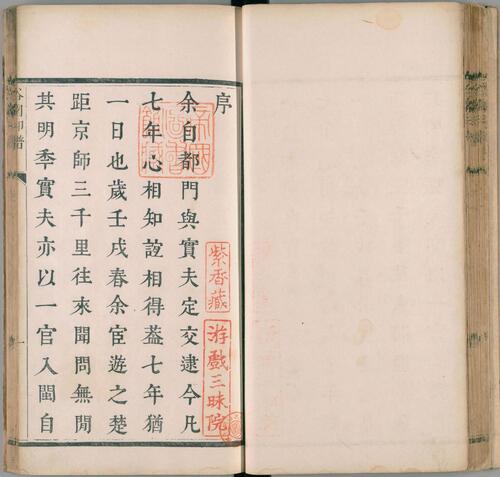 序
余自都門與實夫定交逮今凡
七年心相知誼相得葢七年猶
一日也歲壬戌春余宦遊之楚
距京師三千里往來聞問無閒
其明季實夫亦以一官入閩自
紫香藏
游戲三昧院
印譜
一